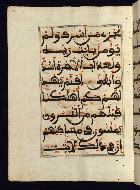 نجزي من أسرف ولم
يؤمن بآيت ربه
ولعذاب الآخرة أشد
وأبقى أفلم يهد
لهم كم أهلكنا
قبلهم من القرون
يمشون في مسكنهم
إن في ذلك لآيت